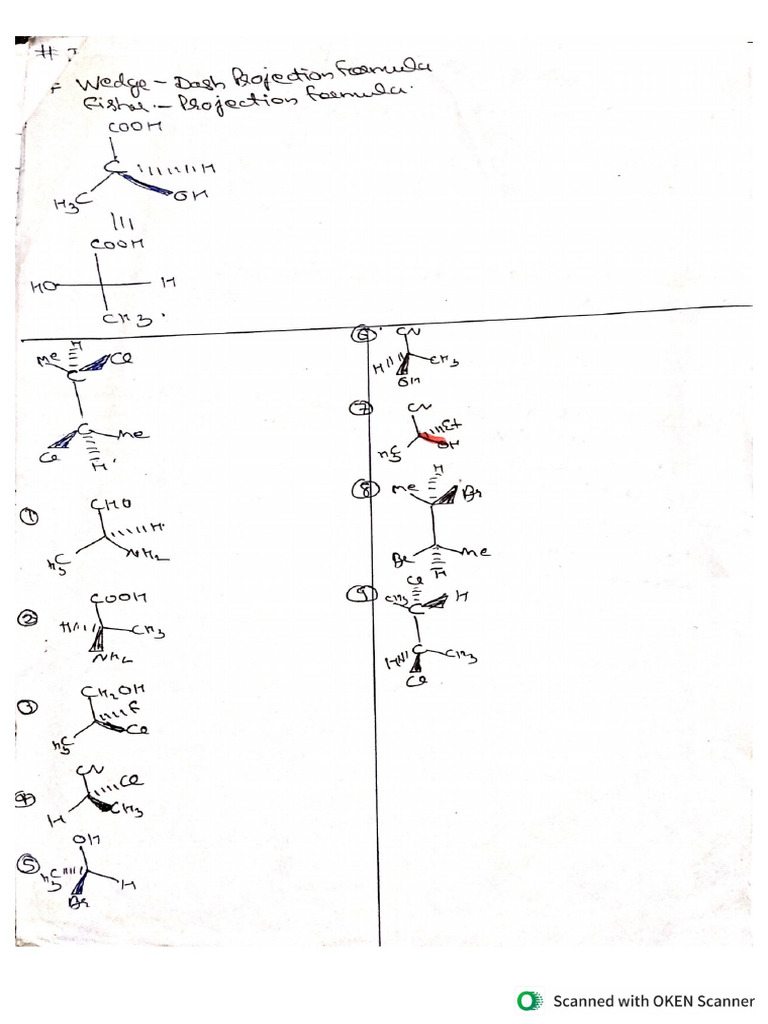 #
Wedge - Dash Projection Formula
Fisher - Projection Formula.
COOH
C H
H3C OH
COOH
HO H
CH3.
H
Me Cl
C
C Me
Cl
H.
①
CHO
H
H3C NH2
②
COOH
H CH3
NH2
③
CH2OH
F
H3C Cl
④
CN
Cl
H CH3
⑤
OH
H3C H
Br
⑥
CN
H CH3
OH
⑦
CN
Et
H3C OH
⑧
H
Me Br
Br Me
H
⑨
Cl
CH3 H
C
C
H CH3
Cl
Scanned with OKEN Scanner